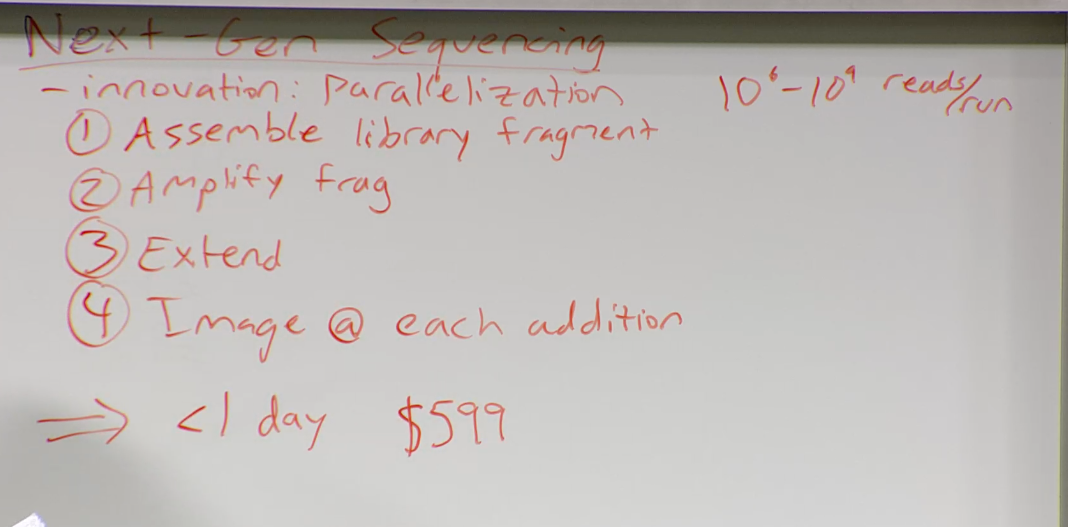 Next-Gen Sequencing
- innovation: Parallelization 10⁶-10⁹ reads/run
① Assemble library fragment
② Amplify frag
③ Extend
④ Image @ each addition
⇒ <1 day $599